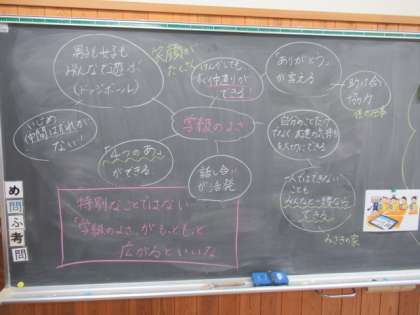 男子も女子も
みんなで遊ぶ
(ドッジボール)
笑顔が
たくさん
けんかしても
すぐ仲直りが
できる!
「ありがとう」が
言える
助け合い
いじめ
仲間はずれが
ない!
学級のよさ
自分のことだけで
なく、友達の気持ちも
大切にできる
「4つのあ」
ができる
話し合い
が活発
一人ではできない
ことも
みんなと一緒なら
できる
みさきの家
特別なことではない…
「学級のよさ」がもっともっと
広がるといいな
め
問
ふ
考
問